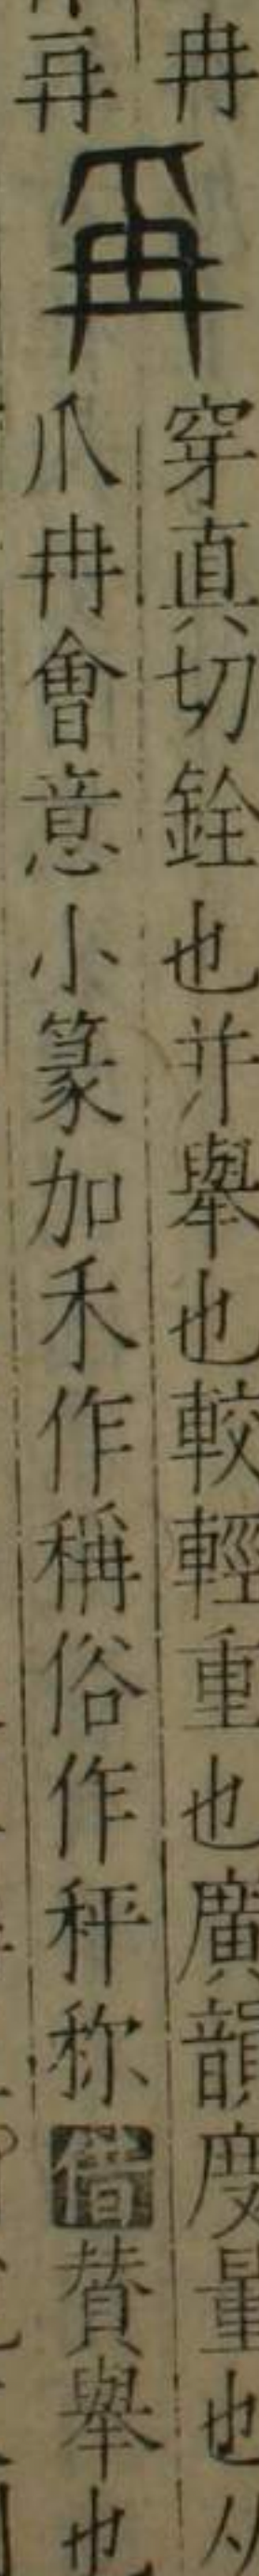 冉
再
爯
穿真切銓也并舉也較輕重也廣韻度量也从
爪冉會意小篆加禾作稱俗作秤称借賛舉也